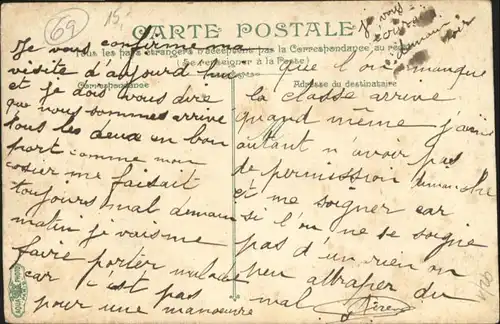 69
15
CARTE POSTALE
Tous les pays étrangers n'acceptent pas la Correspondance au recto
(Se renseigner à la Poste)
Correspondance
Adresse du destinataire
Je vous confirme ma
visite d'aujourd'hui
et je dois vous dire
que nous sommes arrivé
tous les deux en bon
port comme mon
cœur me faisait
toujours mal demain
matin je vais me
faire porter malade
car c'est pas
pour une manœuvre
que l'on manque
la classe arrive
quand même j'aim
autant n'avoir pas
de permission dimanche
et me soigner car
si l'on ne se soigne
pas d'un rien on
peu attraper du
mal
Je vous
demain
soir